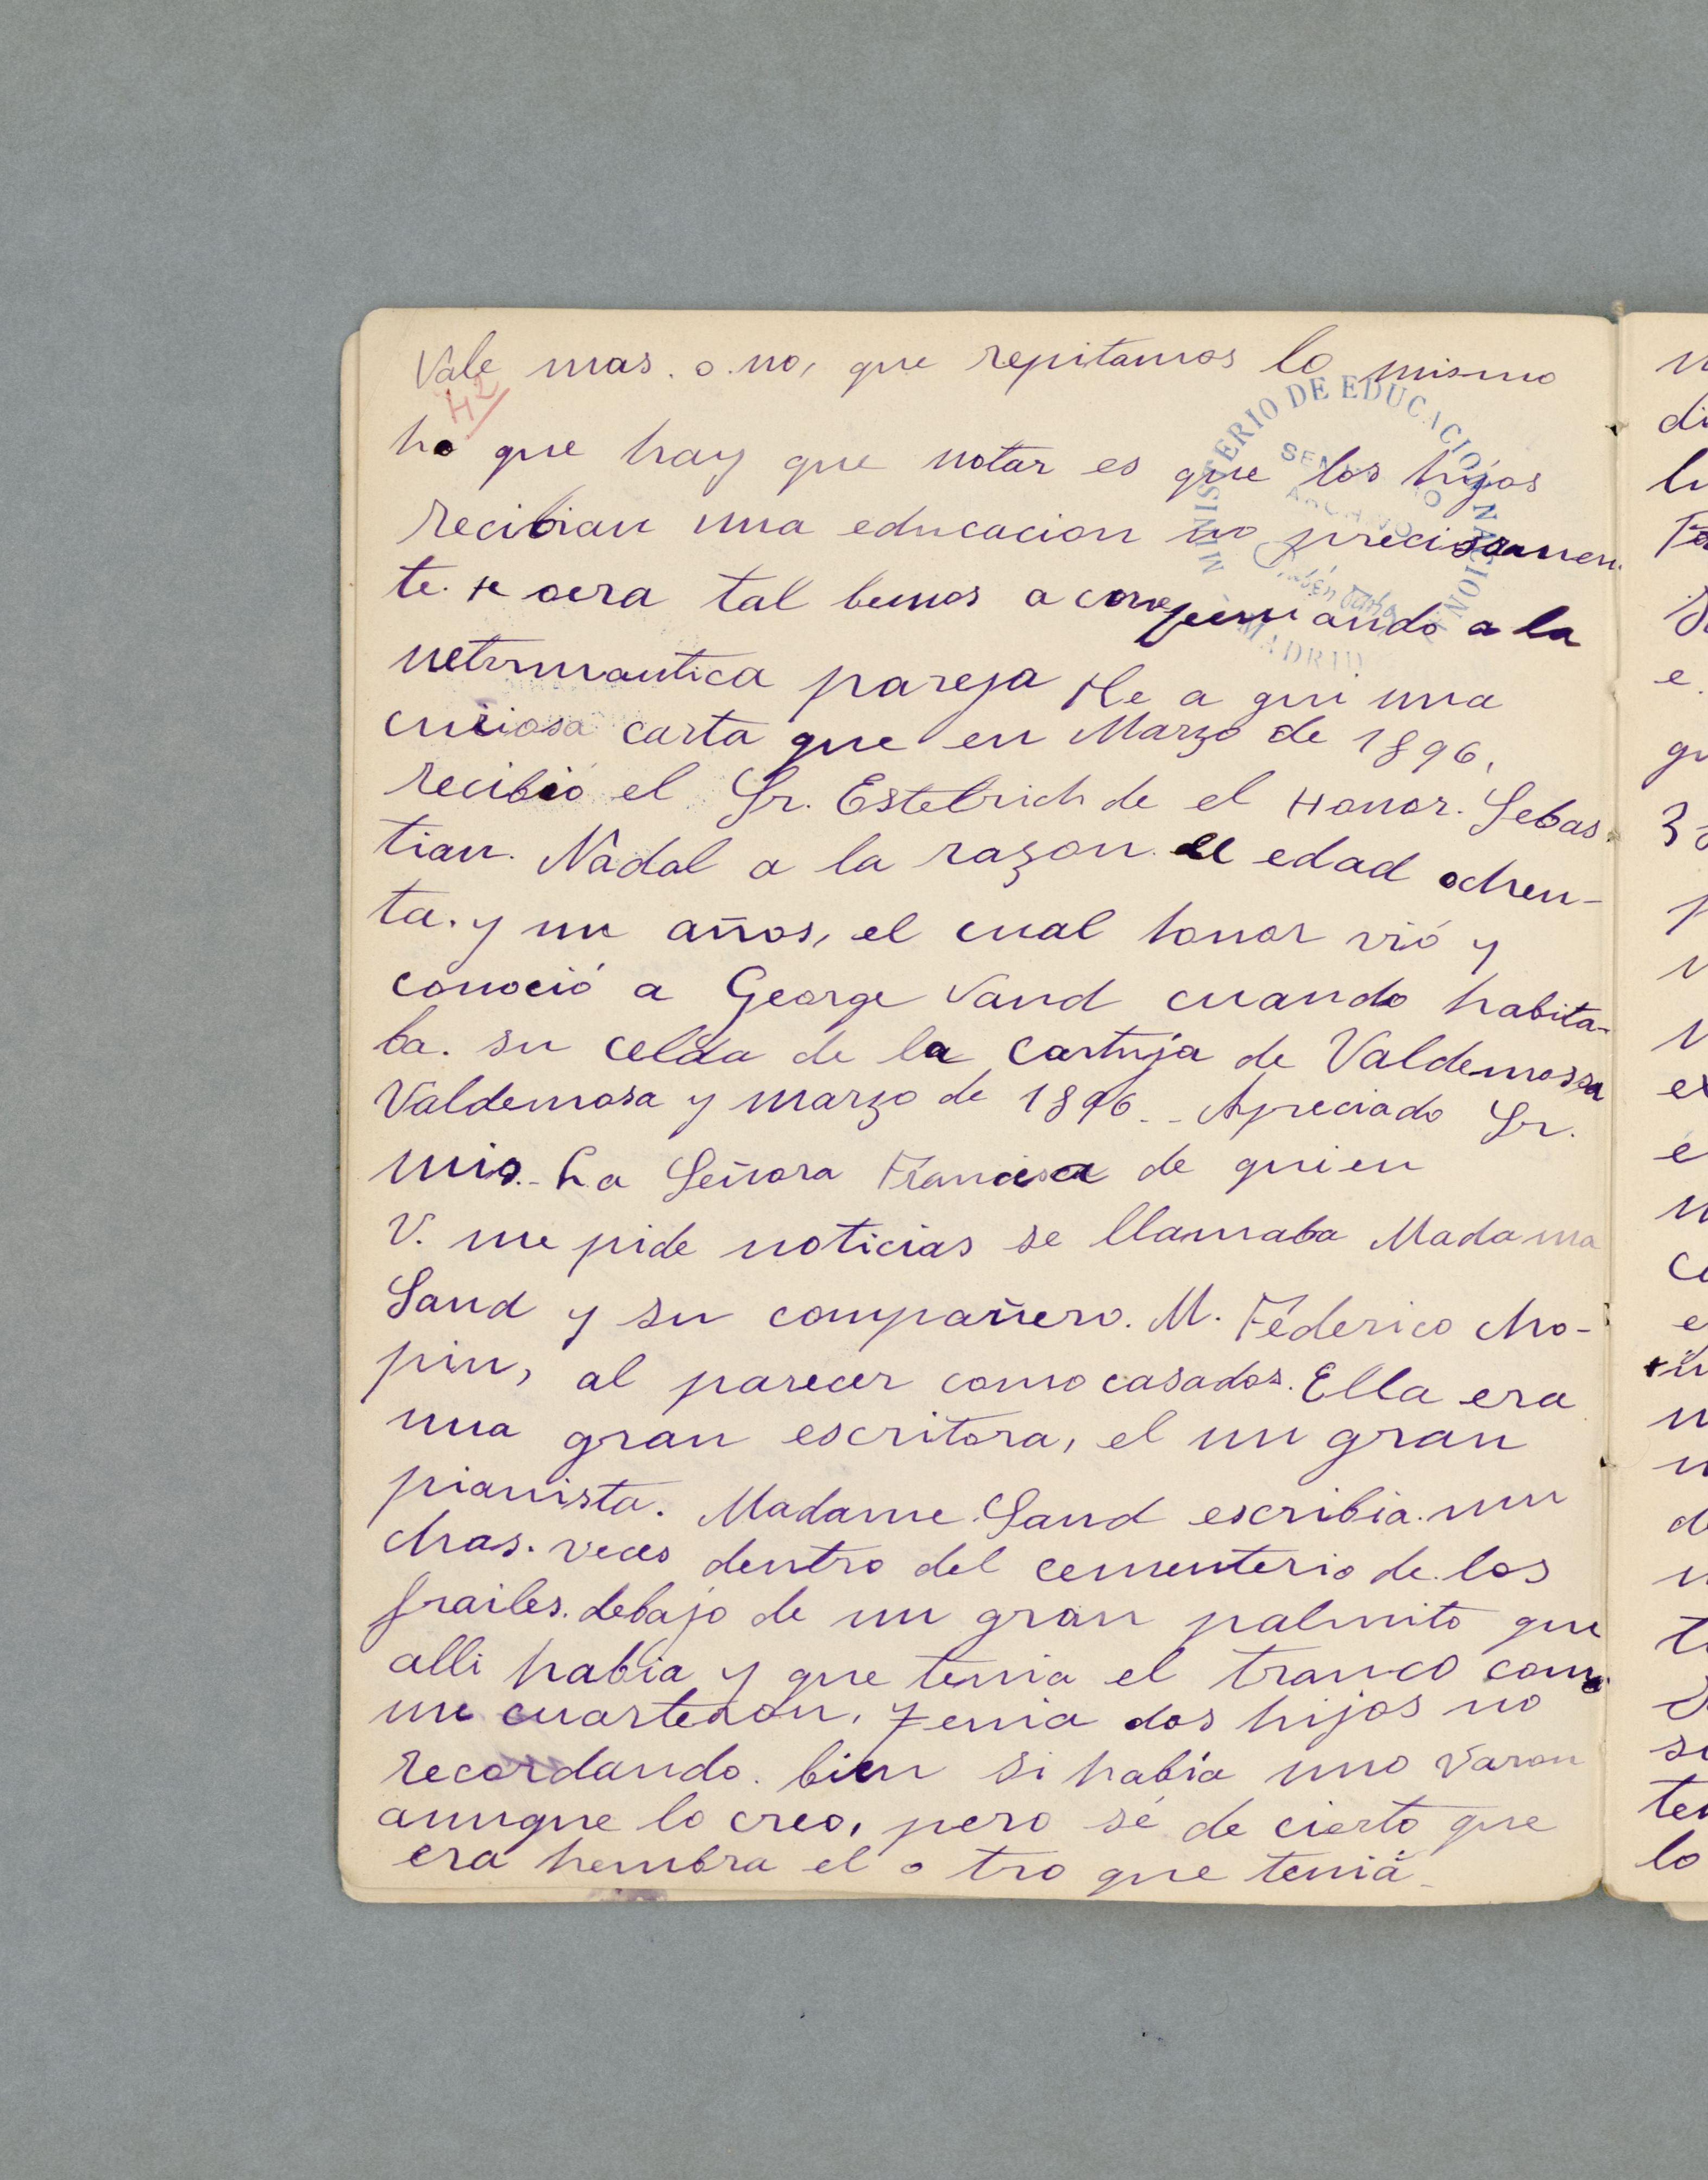 Vale mas. o. no, que repitamos lo mismo
42
ho que hay que notar es que los hijos
recibian una educacion no precisamen
te. tal a la
pareja He a qui una
curiosa carta que en Marzo de 1896,
recibió el Sr. Estelrich de el Honor. Sebas
tian. Nadal a la razon. de edad ochen-
ta. y un años, el cual honor vió y
conoció a George Sand cuando habita-
ba. su celda de la Cartuja de Valdemossa
Valdemosa y marzo de 1896.- Apreciado Sr.
mio.- La Señora Francisca de quien
V. me pide noticias se llamaba Madama
Sand y su compañero. M. Féderico Cho-
pin, al parecer como casados. Ella era
una gran escritora, el un gran
pianista. Madame. Sand escribia. mu
chas. veces dentro del cementerio de. los
frailes. debajo de un gran palmito que
alli habia y que tenia el tranco como
un cuarteron, Tenia dos hijos no
recordando. bien si habia uno varon
aunque lo creo, pero sé de cierto que
era hembra el o tro que tenia
MINISTERIO DE EDUCACION NACIONAL
MADRID
ARCHIVO
di
e.
gu
e
lo